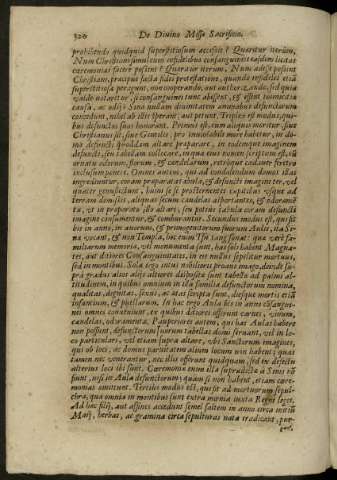 320 De Divino Missæ Sacrificio.
prohibendo quidquid superstitiosum accessit? Quæritur iterùm,
Num Christiani simul cum infidelibus consanguineis easdem licitas
cæremonias facere possint? Quæritur iterum, Num adesse possint
Christiani, præcipuè facta fidei protestatione, quando infideles etiã
superstitiosa peragunt, non cooperando, aut authorizando, sed quia
valdè notantur, si consanguinei tunc absint, & essent inimicitiæ
causa, ac odij? Sinæ nullam divinitatem animabus defunctorum
concedunt, nihil ab illis sperant, aut petunt. Triplex est modus, qui-
bus defunctos suos honorant. Primus est, cum aliquis moritur, sive
Christianus sit, sive Gentilis, pro inviolabili more habetur, in do-
mo defuncti quoddam altare præparare, in eodemque imaginem
defuncti, seu tabellam collocare, in qua eius nomen scriptum est, cũ
ornatu odorum, florum, & candelarum, retróque cadavere feretro
incluso ponitur. Omnes autem, qui ad condolendum domos illas
ingrediuntur, coram præparato tabula, & defuncti imagine ter, vel
quater genuflectunt, humi se se prosternentes capitibus usque ad
terram demissis, aliquas secum candelas asportantes, & odoramẽ-
ta, ut in præparato illo altari, seu potiùs tabula coram defuncti
imagine consumentur, & comburantur. Secundus modus est, qui sit
bis in anno, in avorum, & primogenitorum suorum Aulis, ita Si-
næ vocant, & non Templa, hæc enim Tsu tang sonat: quæ verè fa-
miliarum memoria, vel monumenta sunt, has soli habent Magna-
tes, aut ditiores Consanguinitates, in eis nullus sepelitur mortuus,
sed in montibus. Sola ergo intus nobilioris proavi imago, deinde su-
pra gradus alios alijs altiores dispositæ sunt tabellæ ad palmi al-
titudinem, in quibus omnium in illa familia defunctorum nomina,
qualitas, dignitas, sexus, ac ætas scripta sunt, diesque mortis etiã
infantium, & puellarum. In hac ergo Aula bis in anno consangui-
nei omnes conveniunt, ex quibus ditiores offerunt carnes, vinum,
candelas, odoramenta. Pauperiores autem, qui has Aulas habere
non possunt, defunctorum suorum tabellas domi servant, vel in lo-
co particulari, vel etiam supra altare, ubi Sanctorum imagines,
qui ob loci, ac domus paritatem alium locum non habent; quas
tamen nec venerantur, nec illis offerunt quidquam, sed ex defectu
alterius loci ibi sunt. Cæremonia enim illa supradicta à Sinis nõ
sunt, nisi in Aula defunctorum; quàm si non habent, etiam cære-
monias omittunt. Tertius modus est, qui sit ad mortuorum sepul-
chra, quæ omnia in montibus sunt extra mœnia iuxta Regni leges.
Ad hæc filij, aut affines accedunt semel saltem in anno circa initiũ
Maij, herbas, ac gramina circa sepulturas nata eradicant, pur-
gant,